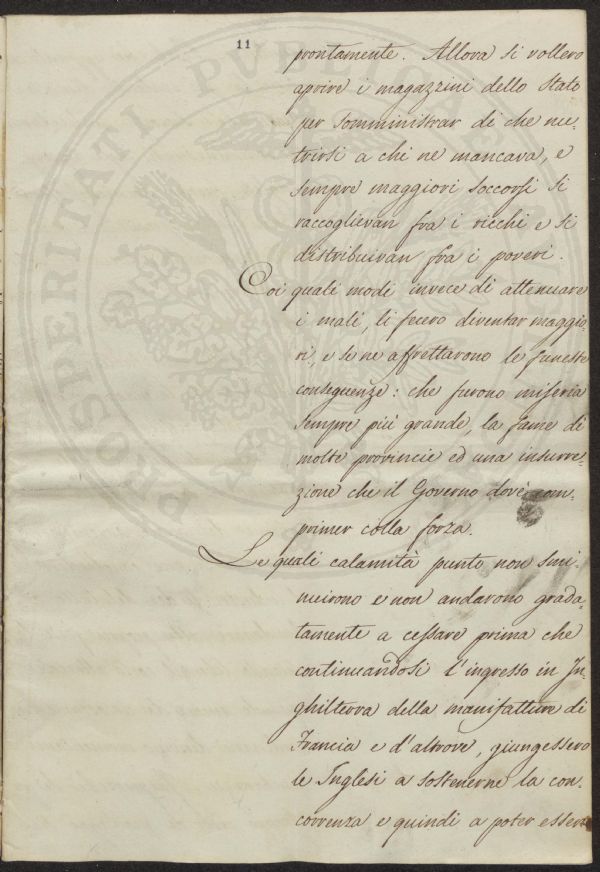 11
prontamente. Allora si vollero
aprire i magazzini dello Stato
per somministrar di che nu-
trirsi a chi ne mancava, e
sempre maggiori soccorsi si
raccoglievan fra i ricchi e si
distribuivan fra i poveri.
Coi quali modi invece di attenuare
i mali, li fecero diventar maggio-
ri, e se ne affrettarono le funeste
conseguenze: che furono miseria
sempre più grande, la fame di
molte provincie ed una insurre-
zione che il Governo dovè com-
primer colla forza.
Le quali calamità punto non smi-
nuirono e non andarono grada-
tamente a cessare prima che
continuandosi l'ingresso in In-
ghilterra della manifatture di
Francia e d'altrove, giungessero
le Inglesi a sostenerne la con-
correnza e quindi a poter essere
PROSPERITATI PVBLICAE